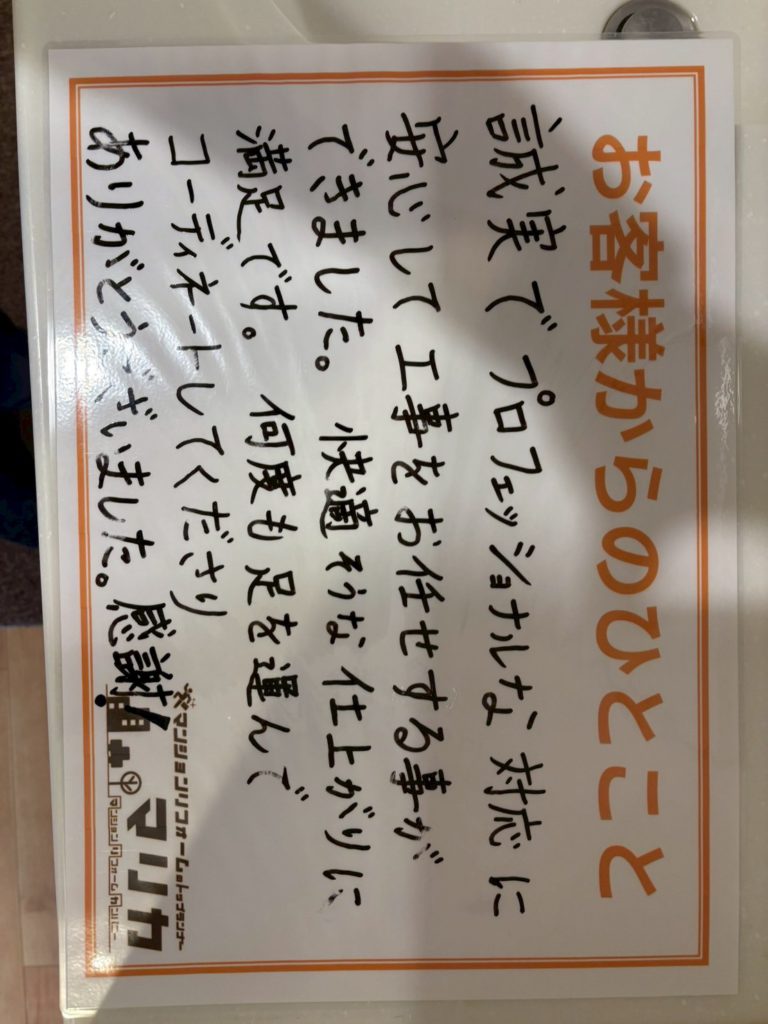 お客様からのひとこと
誠実でプロフェッショナルな対応に
安心して工事をお任せする事が
できました。快適そうな仕上がりに
満足です。何度も足を運んで
コーディネートしてくださり
ありがとうございました。感謝!
マンションリフォームのトップランナー
マリカ
マンションリフォームカンパニー